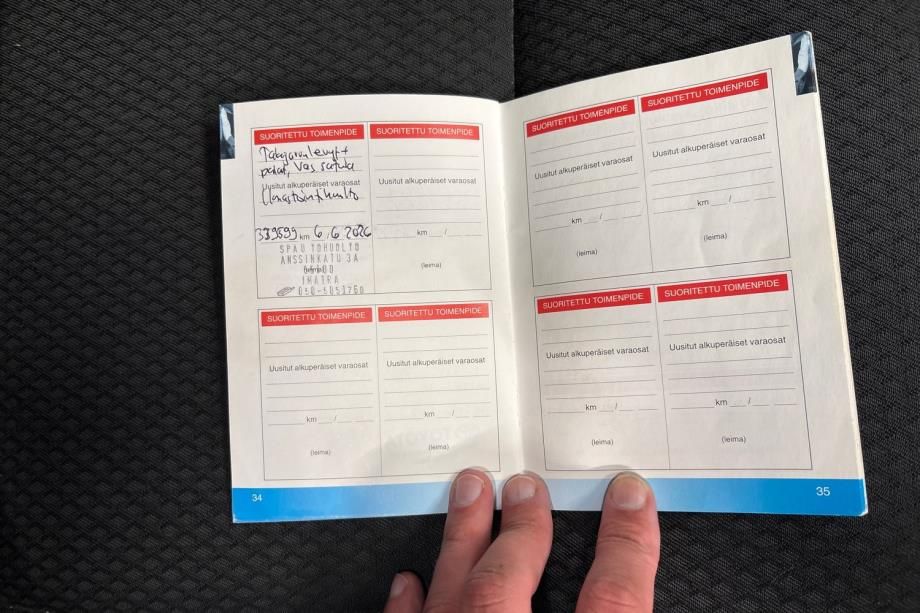 SUORITETTU TOIMENPIDE
Takajarrulevyt+
palat, Vas satula
Uusitut alkuperäiset varaosat
339599 km 6.6 2026
SPAUTOHUOLTO
ANSSINKATU 3A
(leima)
IMATRA
SUORITETTU TOIMENPIDE
Uusitut alkuperäiset varaosat
km /
(leima)
SUORITETTU TOIMENPIDE
Uusitut alkuperäiset varaosat
km /
(leima)
SUORITETTU TOIMENPIDE
Uusitut alkuperäiset varaosat
km /
(leima)
34
SUORITETTU TOIMENPIDE
Uusitut alkuperäiset varaosat
km /
(leima)
SUORITETTU TOIMENPIDE
Uusitut alkuperäiset varaosat
km /
(leima)
SUORITETTU TOIMENPIDE
Uusitut alkuperäiset varaosat
km /
(leima)
SUORITETTU TOIMENPIDE
Uusitut alkuperäiset varaosat
km /
(leima)
35